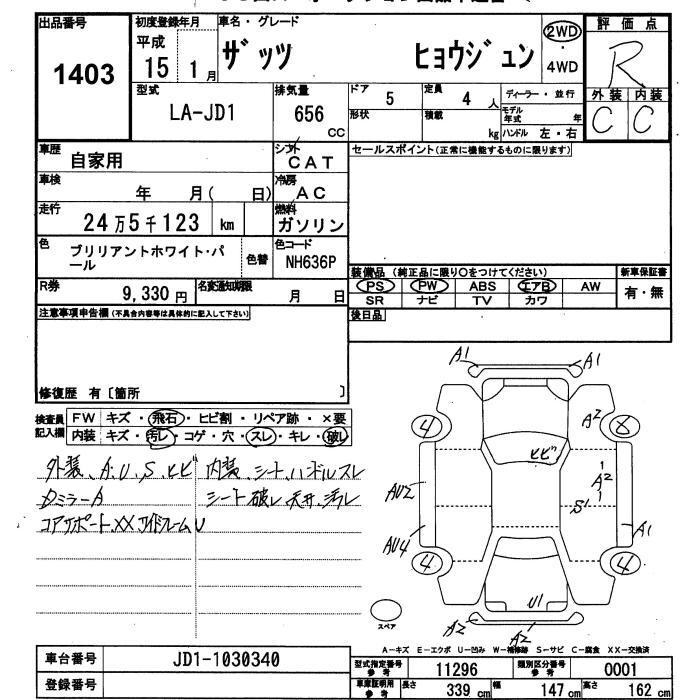 出品番号
1403
初度登録年月
平成
15 1月
車名・グレード
ザッツ ヒョウジュン
2WD
・
4WD
評価点
R
外装 内装
C C
型式
LA-JD1
排気量
656
CC
ドア 5
定員 4人
形状
積載 kg
ディーラー・並行
モデル年式 年
ハンドル 左・右
車歴 自家用
シフト CAT
車検 年 月( 日)
冷房 AC
走行 24万5千123 km
燃料 ガソリン
色 ブリリアントホワイト・パール
色替
色コード NH636P
R券 9,330円
名変通知期限 月 日
セールスポイント(正常に機能するものに限ります)
装備品 (純正品に限り○をつけてください)
PS PW ABS エアB AW
SR ナビ TV カワ
新車保証書
有・無
後日品
注意事項申告欄(不具合内容等は具体的に記入して下さい)
修復歴 有〔箇所 〕
検査員記入欄
FW キズ・飛石・ヒビ割・リペア跡・×要
内装 キズ・汚レ・コゲ・穴・スレ・キレ・破レ
外装、A、U、S、ヒビ
内装、シート、ハンドルスレ
ミラーA
シート破レ、天井、汚レ
コアサポート、XX サイドフレーム、U
A1 A1
4 A2 8
ヒビ
AU2 A2
S1 A1
AU4
4 4
U1
A2 A2
スペア
A-キズ E-エクボ U-凹み W-補修跡 S-サビ C-腐食 XX-交換済
車台番号 JD1-1030340
登録番号
型式指定番号 参考 11296
類別区分番号 参考 0001
車庫証明用 参考 長さ 339cm 幅 147cm 高さ 162cm